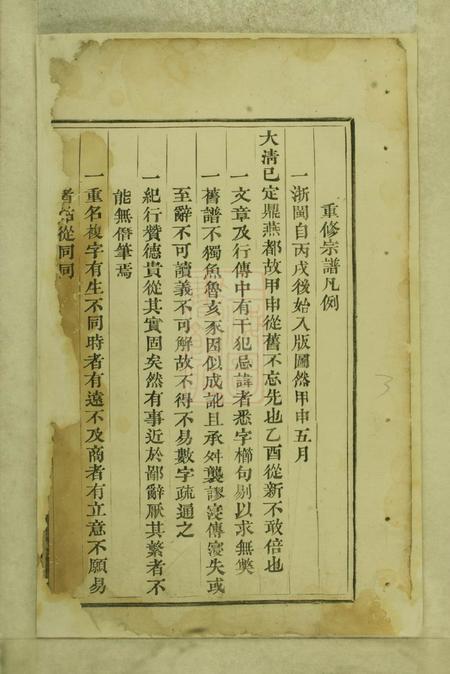 重修宗譜凡例
一浙閩自丙戌後始入版圖然甲申五月
大清已定鼎燕都故甲申從舊不忘先也乙酉從新不敢倍也
一文章及行傳中有干犯忌諱者悉字櫛句剔以求無獘
一舊譜不獨魚魯亥豕因似成訛且承舛襲謬寖傳寖失或
至辭不可讀義不可解故不得不易數字疏通之
一紀行贊德貴從其實固矣然有事近於鄙辭厭其繁者不
能無僭筆焉
一重名複字有生不同時者有遠不及商者有立意不願易
者 從同同
3